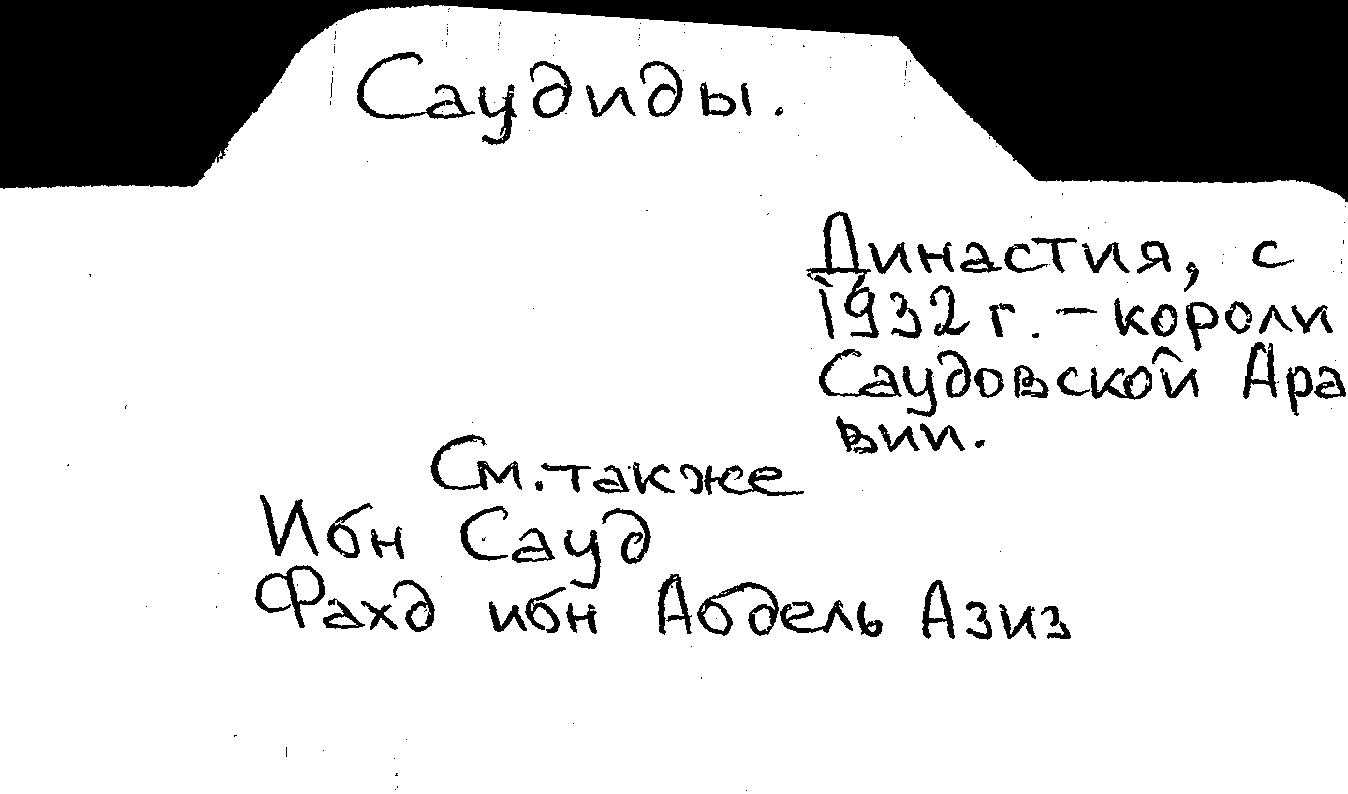 Саудиды.
Династия, с
1932 г. - короли
Саудовской Ара
вии.
См. также
Ибн Сауд
Фахд ибн Абдель Азиз